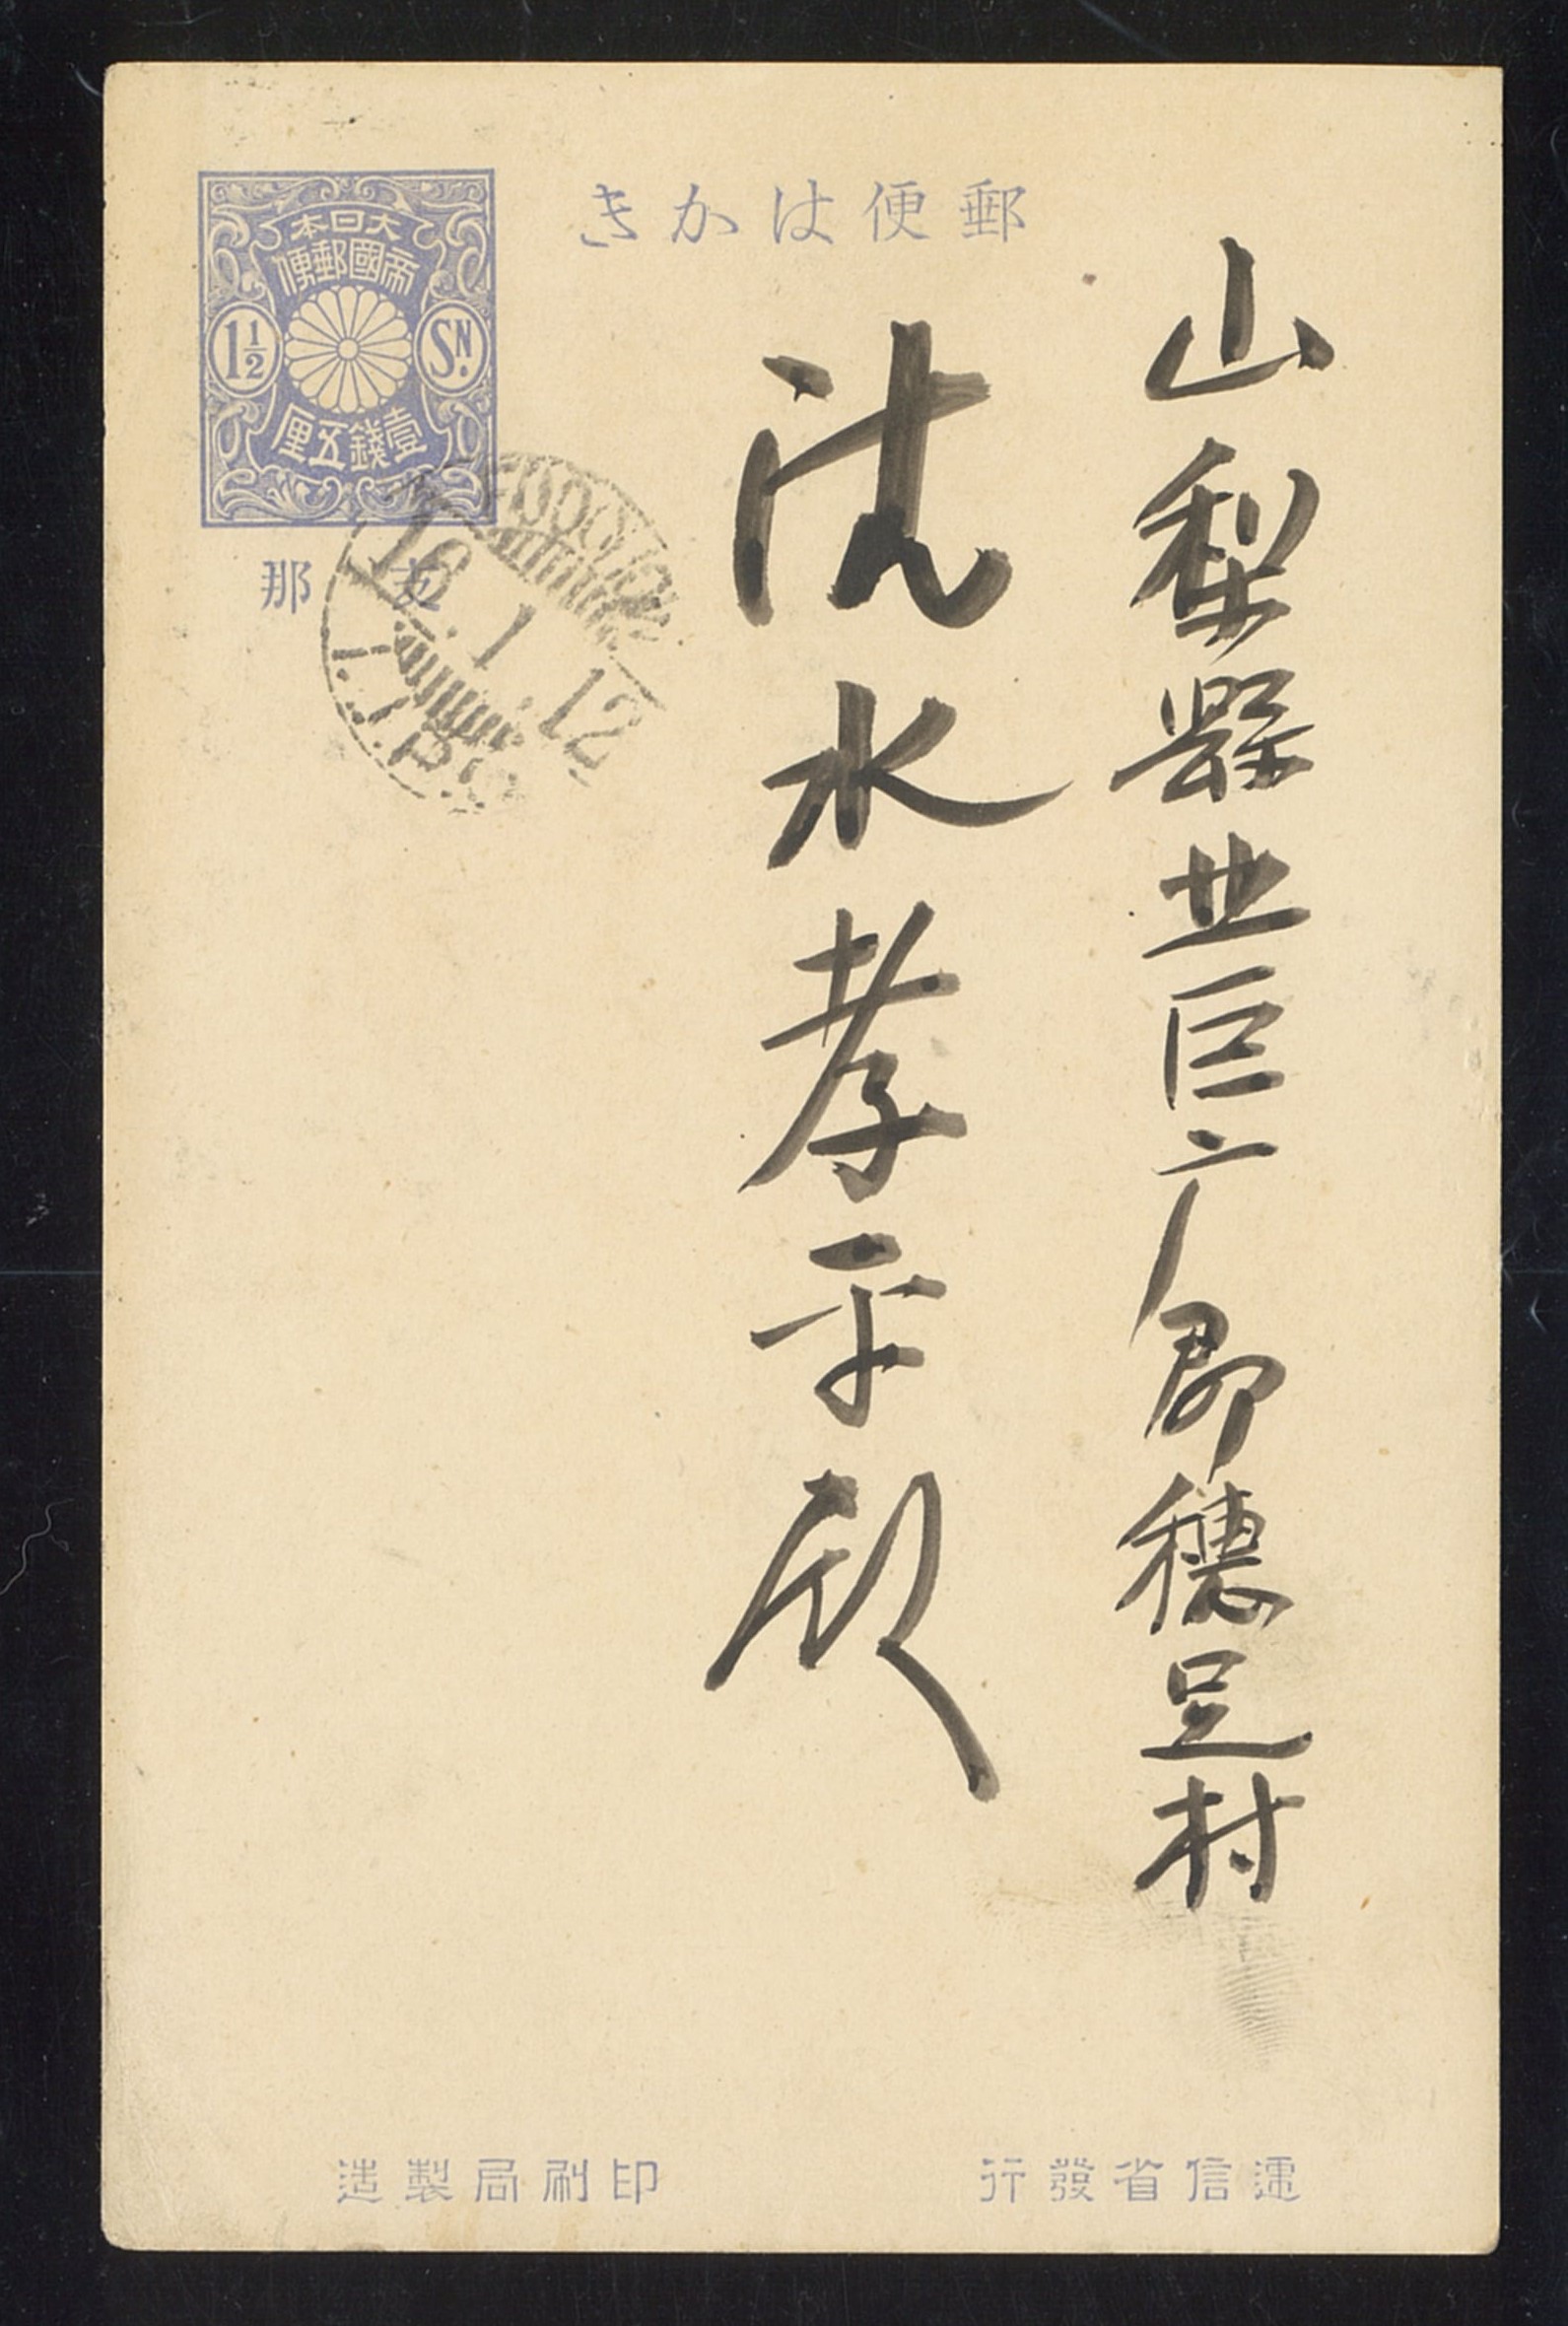 郵便はかき
大日本
帝國郵便
1½ SN.
壹錢五厘
支那
FOOCHOW
1 12
I.J.P.O.
山梨縣北巨广郡穗足村
清水孝平殿
遞信省發行
印刷局製造